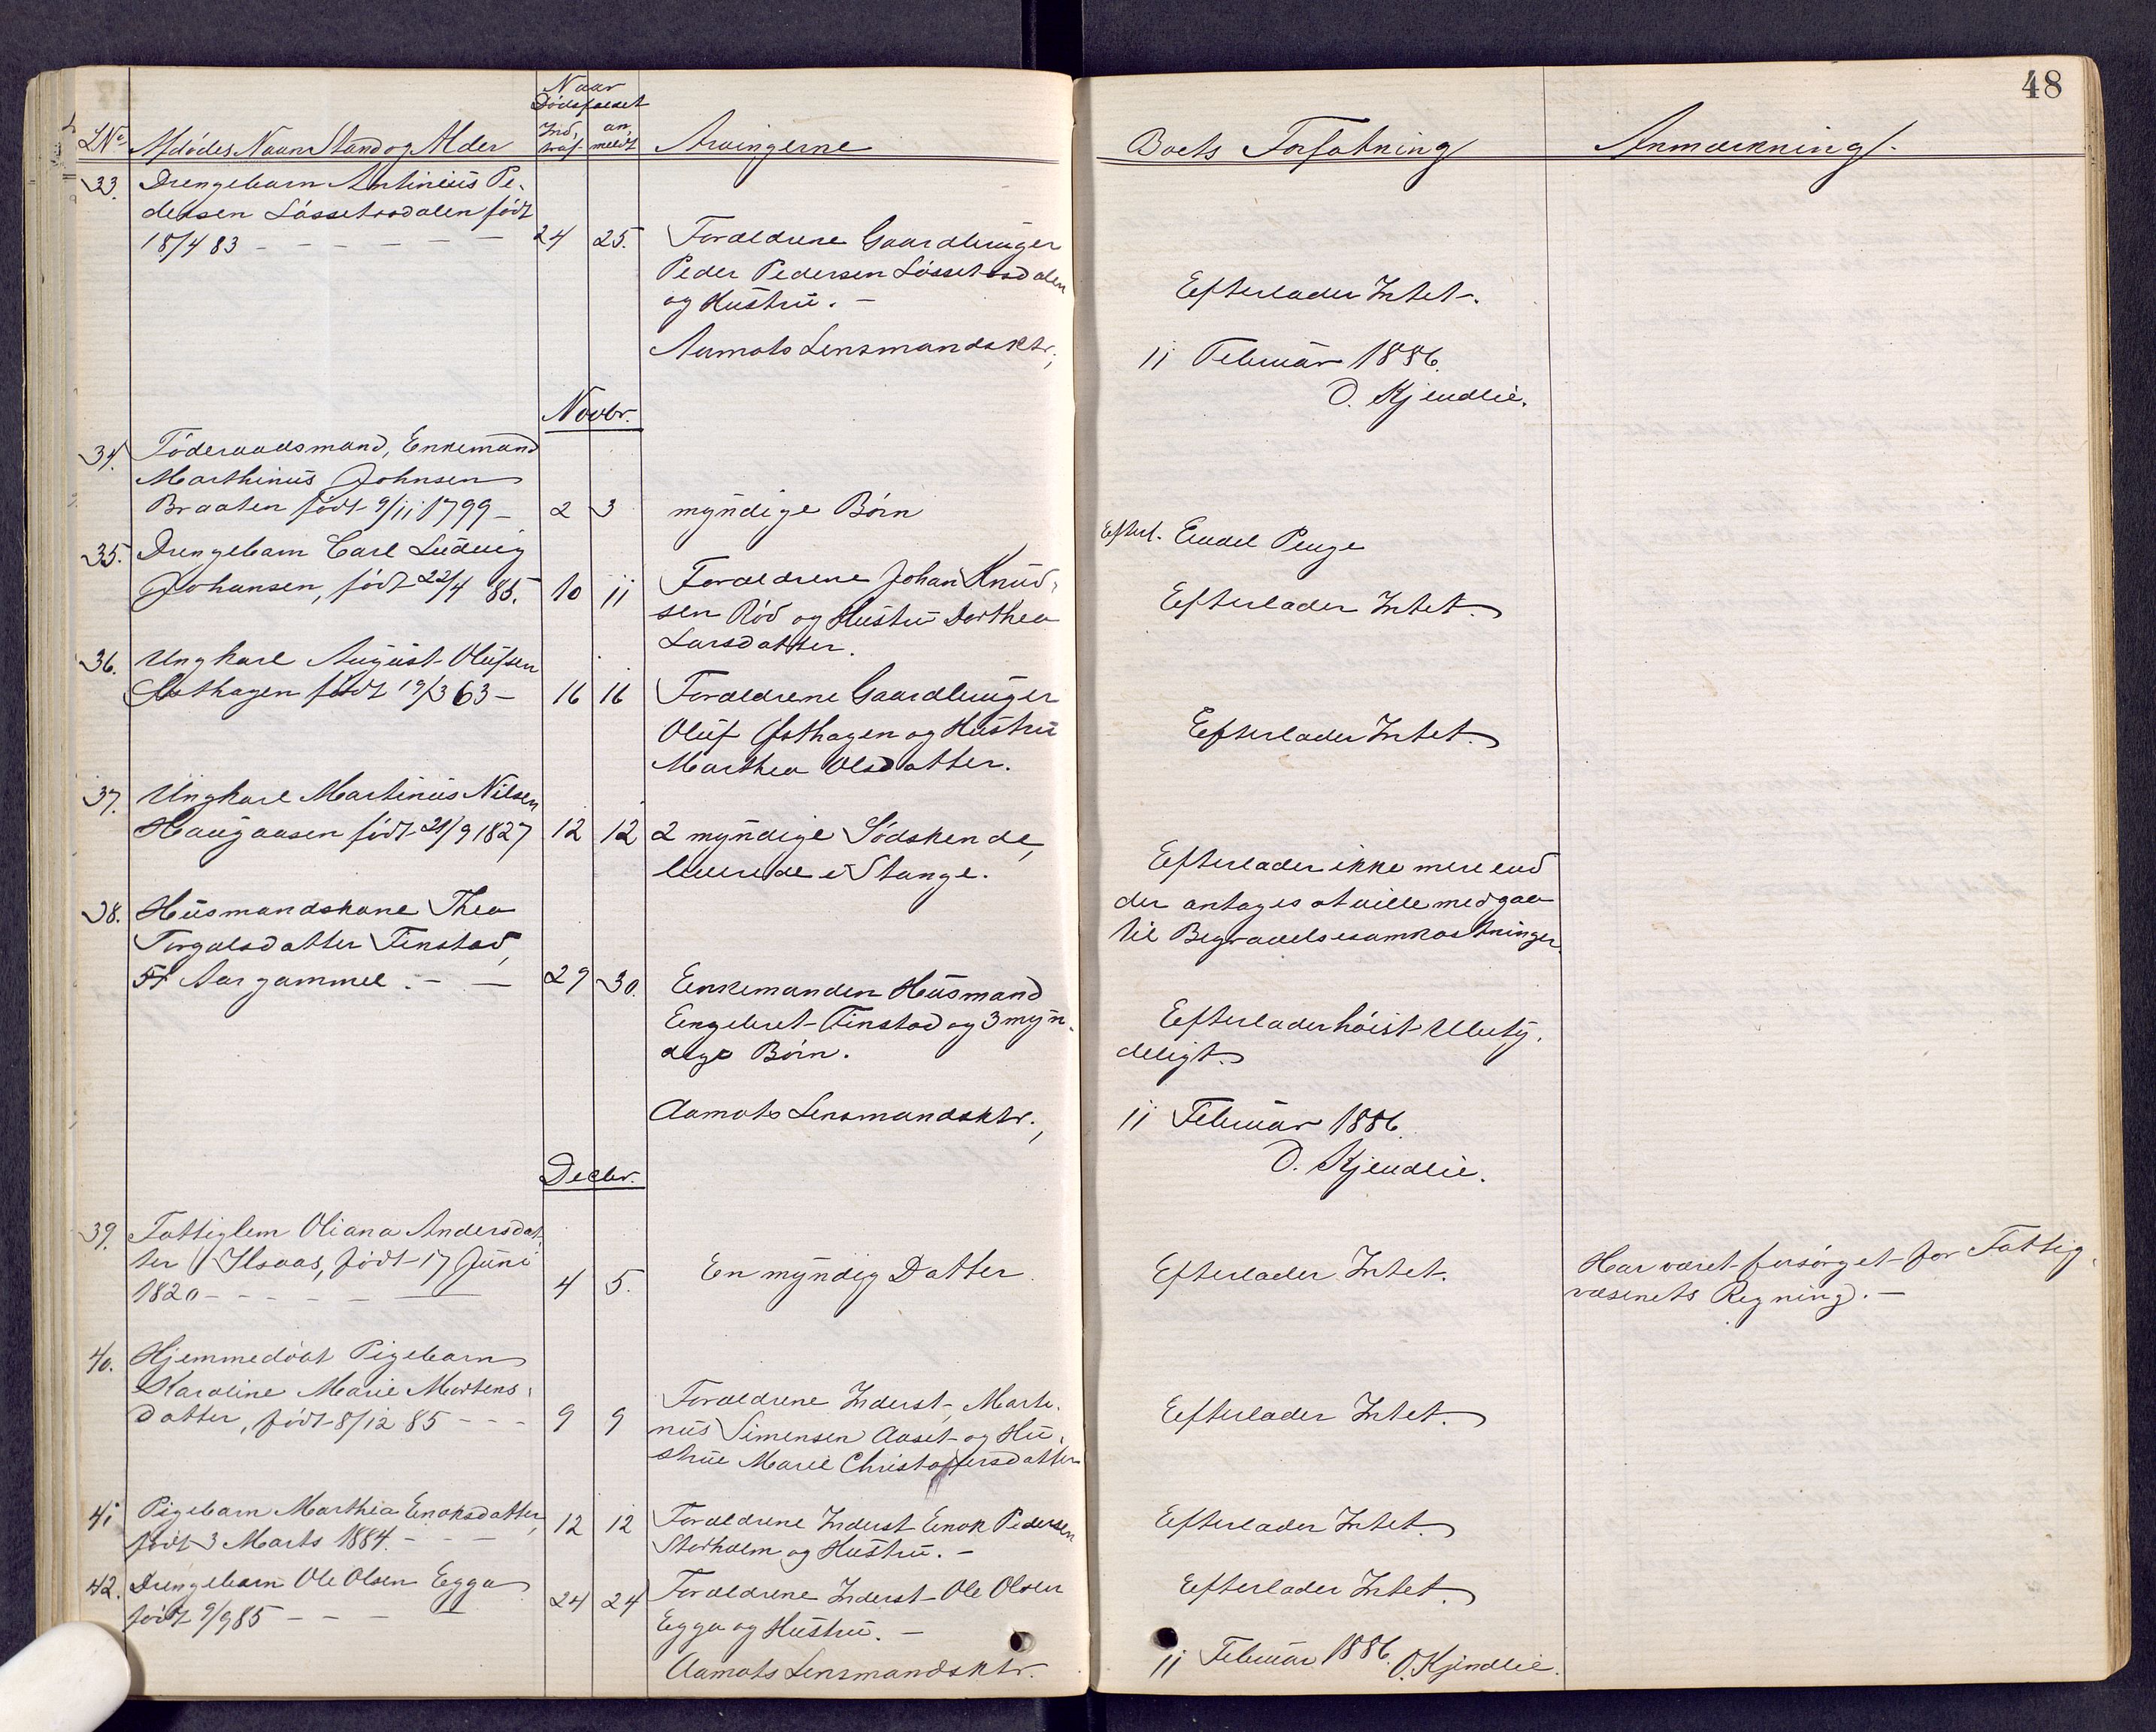 48
Naar
Dødsfaldet
LNo Afdødes Navn Stand og Alder Ind- traf. an- meldt Arvingerne Boets Forfatning Anmærkning.
33. Drengebarn Antinius Pe-
dersen Løssetrødalen født
18/4 83 - - - - - - 24 25. Forældrene Gaardbruger
Peder Pedersen Løssetrødalen
og Hustru. - Efterlader Intet.
Aamots Lensmandsktr., 11 Februar 1886.
O. Kjendlie.
Novbr.
34. Føderaadsmand, Enkemand
Marthinus Johnsen
Braaten født 9/11 1799 - 2 3 myndige Børn Efterl. Endel Penge
35. Drengebarn Carl Ludvig
Johansen, født 22/4 85. 10 11 Forældrene Johan Knud-
sen Rød og Hustru Dorthea
Larsdatter. Efterlader Intet.
36. Ungkarl August Olufsen
Østhagen født 19/3 63 - 16 16 Forældrene Gaardbruger
Oluf Østhagen og Hustru
Marthea Olsdatter. Efterlader Intet.
37. Ungkarl Martinius Nilsen
Haugaasen født 21/9 1827 12 12 2 myndige Sødskende,
levende i Stange. Efterlader ikke mere end
der antages at ville medgaa
til Begravelsesomkostninger.
38. Husmandskone Thea
Torgalsdatter Finstad,
Aar gammel. - - 29 30. Enkemanden Husmand
Engebret Finstad og 3 myn-
dige Børn. Efterlader høist Ubety-
deligt.
Aamots Lensmandsktr., 11 Februar 1886.
O. Kjendlie.
Decbr.
39. Fattiglem Oliana Andersdat-
ter Ilsaas, født 17 Juni
1820 - - - - - 4 5. En myndig Datter Efterlader Intet. Har været forsørget for Fattig-
væsenets Regning. -
40. Hjemmedøbt Pigebarn
Karoline Marie Martens-
datter, født 8/12 85 - - - 9 9 Forældrene Inderst, Marti-
nus Simensen Aaset og Hu-
strue Marie Christoffersdatter Efterlader Intet.
41 Pigebarn Marthea Enoksdatter,
født 3 Marts 1884. - - - 12 12 Forældrene Inderst Enok Pedersen
Storholm og Hustru. - Efterlader Intet.
42. Drengebarn Ole Olsen Egga
født 9/9 85 - - - 24 24 Forældrene Inderst Ole Olsen
Egga og Hustru. - Efterlader Intet.
Aamots Lensmandsktr. 11 Februar 1886. O. Kjendlie.